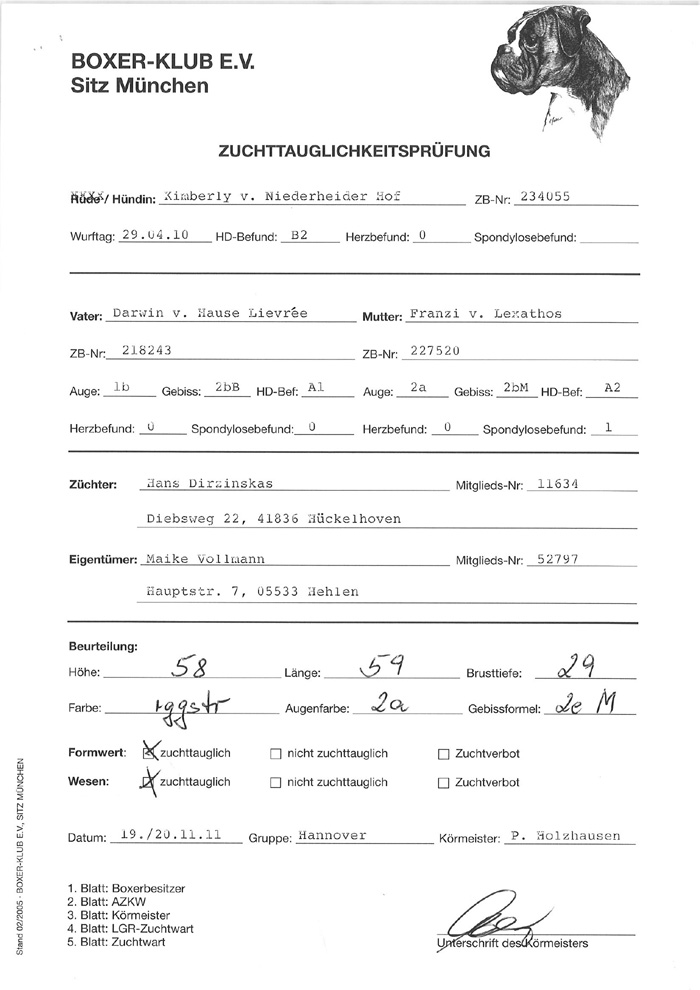 BOXER-KLUB E.V.
Sitz München
ZUCHTTAUGLICHKEITSPRÜFUNG
Rüde / Hündin: Kimberly v. Niederheider Hof ZB-Nr: 234055
Wurftag: 29.04.10 HD-Befund: B2 Herzbefund: 0 Spondylosebefund:
Vater: Darwin v. Hause Lievrée Mutter: Franzi v. Lexathos
ZB-Nr: 218243 ZB-Nr: 227520
Auge: 1b Gebiss: 2bB HD-Bef: A1 Auge: 2a Gebiss: 2bM HD-Bef: A2
Herzbefund: 0 Spondylosebefund: 0 Herzbefund: 0 Spondylosebefund: 1
Züchter: Hans Dirzinskas Mitglieds-Nr: 11634
Diebsweg 22, 41836 Hückelhoven
Eigentümer: Maike Vollmann Mitglieds-Nr: 52797
Hauptstr. 7, 05533 Hehlen
Beurteilung:
Höhe: 58 Länge: 59 Brusttiefe: 29
Farbe: rggstr Augenfarbe: 2a Gebissformel: 2e M
Formwert: zuchttauglich nicht zuchttauglich Zuchtverbot
Wesen: zuchttauglich nicht zuchttauglich Zuchtverbot
Datum: 19./20.11.11 Gruppe: Hannover Körmeister: P. Holzhausen
1. Blatt: Boxerbesitzer
2. Blatt: AZKW
3. Blatt: Körmeister
4. Blatt: LGR-Zuchtwart
5. Blatt: Zuchtwart
Unterschrift des Körmeisters
Stand 02/2005 - BOXER-KLUB E.V., SITZ MÜNCHEN